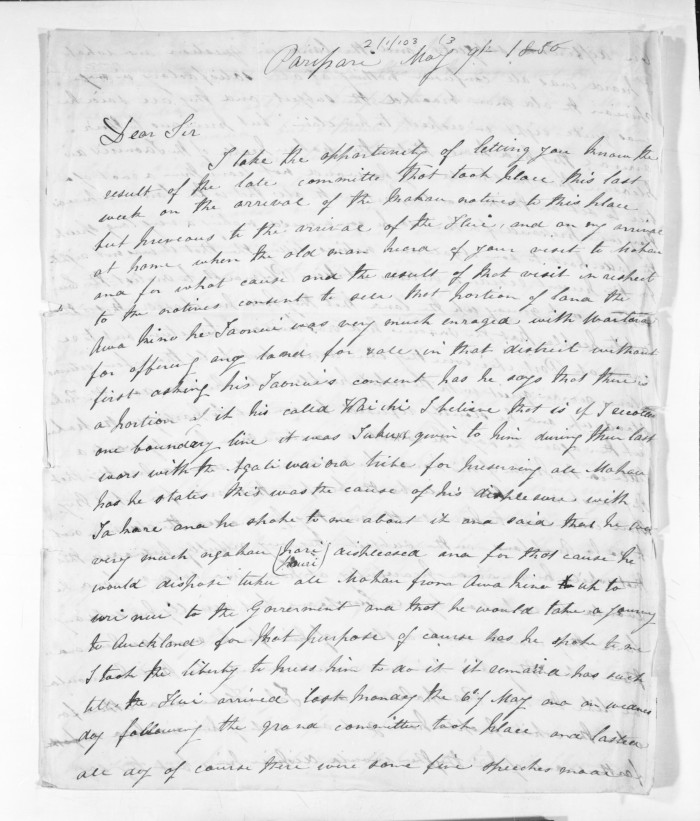 2/1/103 (3
Paripari May 9th 1850
Dear Sir
I take the opportunity of letting you know the
result of the late committee that took place this last
week on the arrival of the Mokau natives to this place
but previous to the arrival of the Hui, and on my arrival
at home, when the old man heard of your visit to Mokau
and for what cause and the result of that visit in respect
to the natives consent to sell that portion of land the
Awa kino he Taonui was very much enraged with
for offering any land for sale in that district without
first asking his Taonui's consent has he says that there is
a portion of it his called Waichi I believe that is if I recollect
one boundary line it was Tukua given to him during their last
wars with the Ngati waiora tribe for preserving all Mokau
has he states this was the cause of his displeasure with
Ta kare and he spoke to me about it and said that he was
very much ngakau (kore / pouri) displeased and for that cause he
would dispose tuku all Mokau from Awa kino up to
wi nui to the Goverment and that he would take a journey
to Auckland for that purpose of course has he spoke to me
I took the liberty to press him to do it it remaind has such
til the Hui arrived last monday the 6th of May and on wednes
day following the grand committee took place and lasted
all day of course there were some fine speeches made